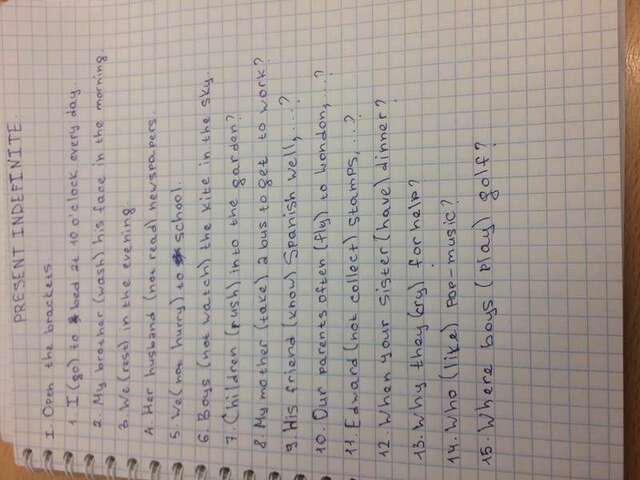 PRESENT INDEFINITE.
I. Open the brackets
1. I (go) to bed at 10 o'clock every day.
2. My brother (wash) his face in the morning.
3. We (rest) in the evening.
4. Her husband (not read) newspapers.
5. We (not hurry) to school.
6. Boys (not watch) the kite in the sky.
7. Children (rush) into the garden?
8. My mother (take) a bus to get to work?
9. His friend (know) Spanish well, ...?
10. Our parents often (fly) to London, ...?
11. Edward (not collect) stamps, ...?
12. When your sister (have) dinner?
13. Why they (cry) for help?
14. Who (like) pop-music?
15. Where boys (play) golf?